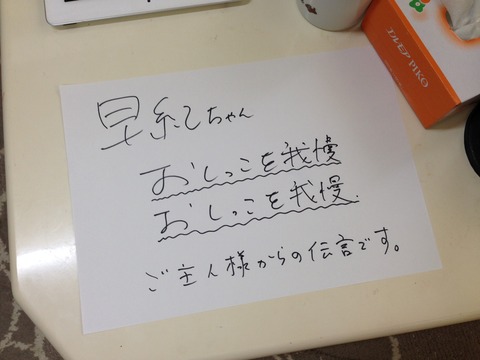 早紀ちゃん
おしっこを我慢
おしっこを我慢.
ご主人様からの伝言です。
エルモア PIKO